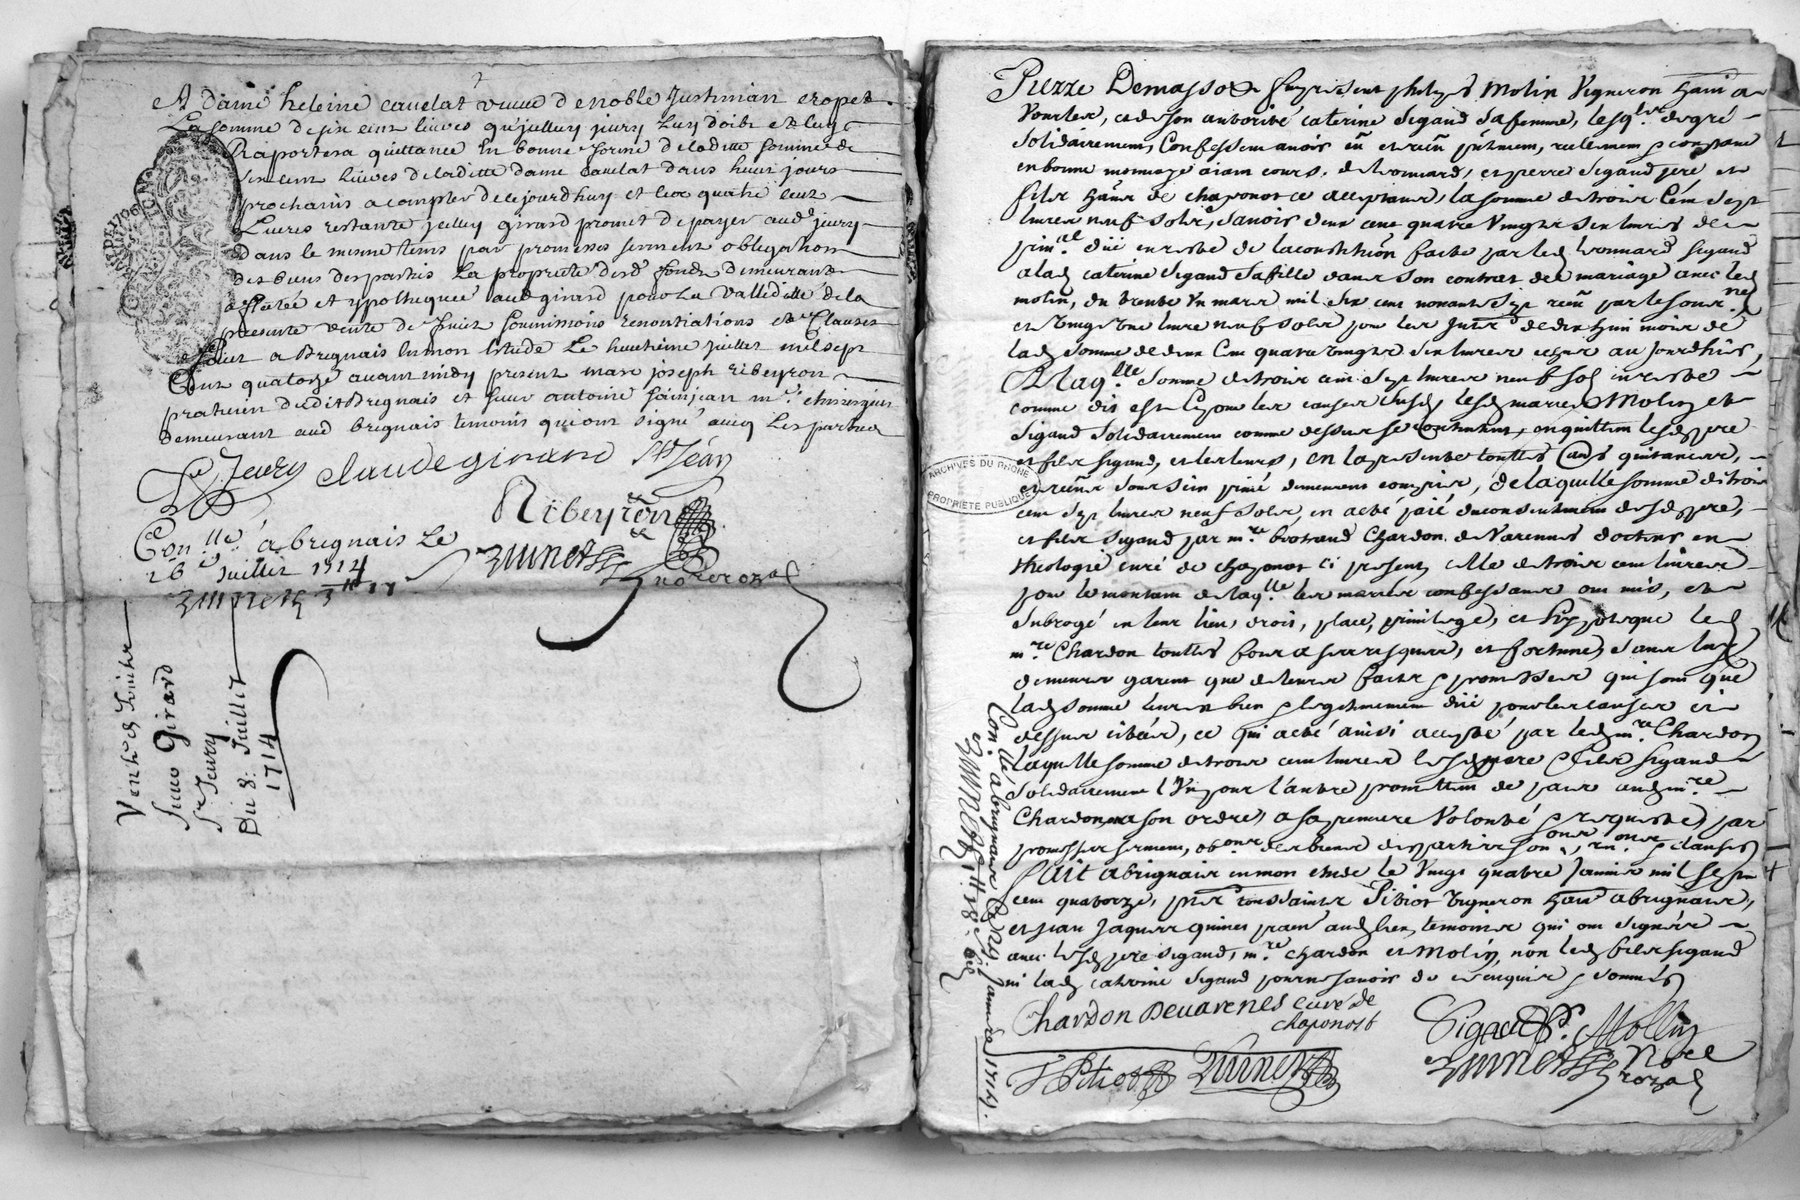 A dame heleine cavelat veuve de noble Justinian croppet
La somme de six cent livres qu'jcelluy jeury Luy doibt et luy
Raportera quittance En bonne forme de laditte somme de
six cent livres de laditte dame cavelat dans huict jours
prochains a compter de cejourdhuy et les quatre cent
Livres restante jcelluy girard promet de payer aud jeury
dans le mesme tems par promesses serment obligation
des biens des parties La proprieté desd fonds demeurant
affectée et ypothequée aud girard pour La validitté de la
presente vente de fruict soummissions renontiations et Clauses
faict a Brignais En mon Estude Le huictieme juillet mil sept
Cent quatorze avant midy present marc joseph ribeyron
praticien dudit Brignais et sieur antoine sainjean mre chirurgien
demeurant aud brignais temoins qui ont signé avec Les parties
Jeury claude girard St Jean
Ribeyron
Conllé à brignais Le
16e Juillet 1714
brunet
no re roza
Vente de fruict
sieur Girard
Sr Jeury
Du 8: Juillet
1714
Pierre Demasso present Molin Vigneron hant a
Vourles, et de son authorité caterine Sigaud sa femme, lesqls de gré
solidairement, Confessent avoir eu et receu presentement, reellement et comptant
en bonne monnoye aiant cours, de Leonnard, et pierre Sigaud pere et
fils hans de chaponost ce acceptants, la somme de trois Cent sept
livres neuf sols, sçavoir deux cent quatre vingts six livres de
prinal dûe en reste de la constitution faitte par led Leonnard Sigaud
a lad caterine Sigaud sa fille dans son contrat de mariage avec led
molin, du trente Un mars mil six cent nonante sept receu par le sousné
et vingt une livre neuf sols pour les jnters de dix huit mois de
lad somme de deux Cent quatre vingts six livres echus au jourdhuy,
Laqlle somme de trois cent sept livres neuf sols en reste
comme dit est et pour les causes susd, lesd maries Molin et
Sigaud solidairement comme dessus se contentent, en quittent lesd pere
et fils Sigaud, et les leurs, en la presente touttes autres quittances,
, de laquelle somme de trois
cent sept livres neuf sols, en a eté paié du consentement desd pere,
et fils Sigaud par mre bertrand Chardon de Varennes docteur en
theologie curé de chaponost ci present, celle de trois cent livres
pour le montant de laqlle les maries confessants ont mis, et
subrogé en leur lieu, droit, place, privilege, et hypoteque led
mre Chardon touttes fois a ses risques, et fortunes, sans luy
demeurer garent que de leurs faits et promesses qui sont que
lad somme leur est bien et legitimement dûe pour les causes ci
dessus citées, ce qui a eté ainsi accepté par led mre Chardon
laquelle somme de trois cent livres lesd pere et fils Sigaud
solidairement l'Un pour l'autre promettent de paier aud mre
Chardon, ou a son ordre, a sa premiere Volonté et requeste, par
promesses serment, obons des biens des parties soubons, renons et clauses
Fait a brignais en mon etude le vingt quatre Janvier mil sept
cent quatorze, pnts toussaints Pitiot vigneron hant a brignais,
et jean Jaques prate aud lieu, temoins qui ont signés
avec lesd pere Sigaud, mre Chardon et Molin, non led fils Sigaud
ni lad caterine Sigaud pour ne sçavoir de ce enquis et sommés
Chardon Devarenes curé de
chaponost
Sigaud Mollin
T Pitiot brunet
brunet Nore
roza
Conllé a brignais Ce Janvier 1714
brunet
ARCHIVES DU RHONE
PROPRIÉTÉ PUBLIQUE